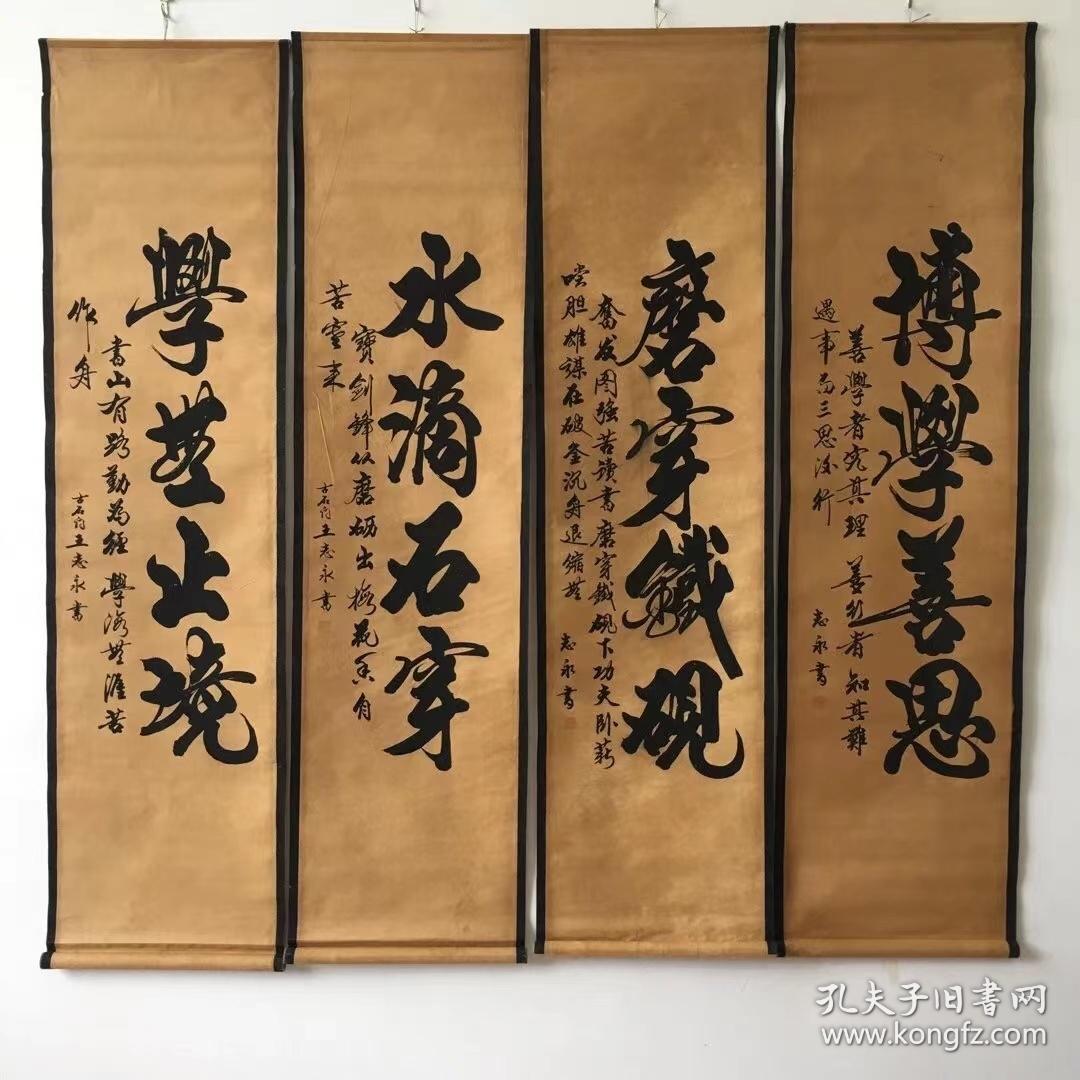 博學善思
善學者究其理 善行者知其難
遇事而三思後行
志永書
磨穿鐵硯
奮发图强苦讀書磨穿鐵硯下功夫卧薪
嚐胆雄謀在破釜沉舟退縮無
志永書
水滴石穿
寶劍鋒从磨砺出梅花香自
苦寒来
王志永書
學無止境
書山有路勤為徑 學海無涯苦
作舟
王志永書
孔夫子旧书网
www.kongfz.com